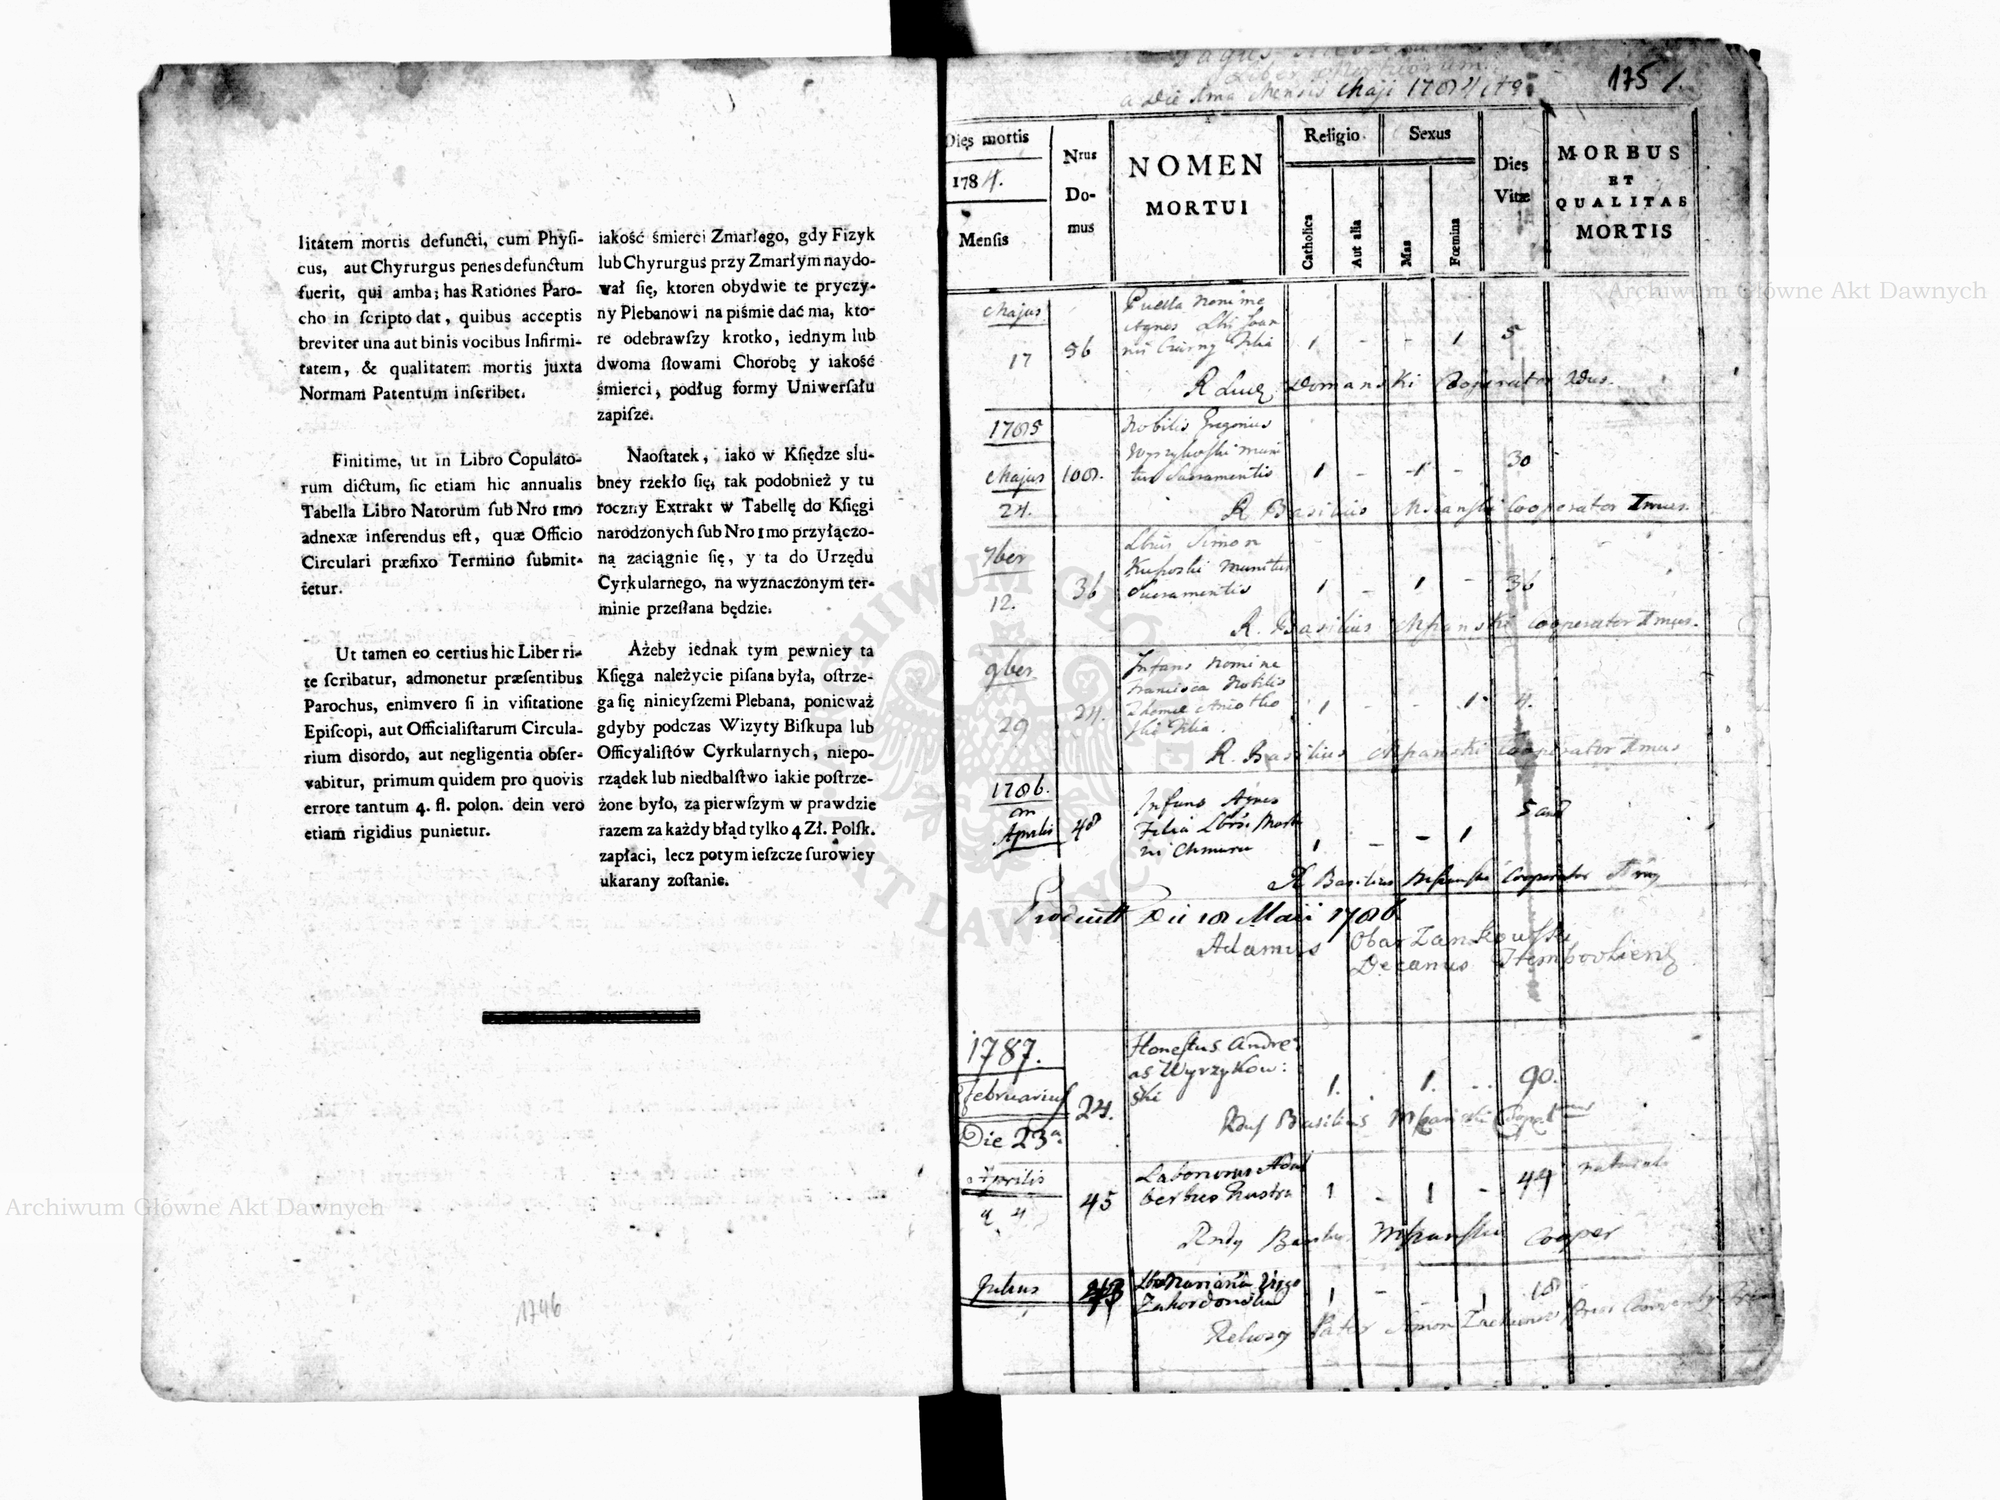 litatem mortis defuncti, cum Physi-
cus, aut Chyrurgus penes defunctum
fuerit, qui amba; has Rationes Paro-
cho in scripto dat, quibus acceptis
breviter una aut binis vocibus Infirmi-
tatem, & qualitatem mortis juxta
Normam Patentum inscribet.
Finitime, ut in Libro Copulato-
rum dictum, sic etiam hic annualis
Tabella Libro Natorum sub Nro 1mo
adnexæ inserendus est, quæ Officio
Circulari præfixo Termino submit-
tetur.
Ut tamen eo certius hic Liber ri-
te scribatur, admonetur præsentibus
Parochus, enimvero si in visitatione
Episcopi, aut Officialistarum Circula-
rium disordo, aut negligentia obser-
vabitur, primum quidem pro quovis
errore tantum 4. fl. polon. dein vero
etiam rigidius punietur.
iakość śmierci Zmarłego, gdy Fizyk
lub Chyrurgus przy Zmarłym naydo-
wał się, ktoren obydwie te pryczy-
ny Plebanowi na piśmie dać ma, kto-
re odebrawszy krotko, iednym lub
dwoma słowami Chorobę y iakość
śmierci, podług formy Uniwersału
zapisze.
Naostatek, iako w Księdze slu-
bney rzekło się, tak podobnież y tu
roczny Extrakt w Tabellę do Księgi
narodzonych sub Nro 1mo przyłączo-
ną zaciągnie się, y ta do Urzędu
Cyrkularnego, na wyznaczonym ter-
minie przesłana będzie.
Ażeby iednak tym pewniey ta
Księga należycie pisana była, ostrze-
ga się ninieyszemi Plebana, ponieważ
gdyby podczas Wizyty Biskupa lub
Officyalistów Cyrkularnych, niepo-
rządek lub niedbalstwo iakie postrze-
żone było, za pierwszym w prawdzie
razem za każdy błąd tylko 4 Zł. Polsk.
zapłaci, lecz potym ieszcze surowiey
ukarany zostanie.
1746
Pagus
Liber Mortuorum
a Die 1ma Mensis Maji 1784
175 1.
Dies mortis
1784.
Mensis
Nrus
Do-
mus
NOMEN
MORTUI
Religio
Catholica
Aut alia
Sexus
Mas
Fœmina
Dies
Vitæ
MORBUS
ET
QUALITAS
MORTIS
Majus
17
56
Puella nomine
Agnes Lbi Joan
nis Czarny Filia
1 - - 1 5
R Domanski Cooperator
1785
Majus
24.
108.
Nobilis Gregorius
Wyrzykoski muni
tus Sacramentis
1 - 1 - 30
R Basilius Mscanski Cooperator Imus.
7ber
12.
36
Lbus Simon
munitus
Sacramentis
1 - 1 - 36
R. Basilius Mspanski Cooperator Imus.
9ber
29
24.
Infans nomine
Francisca Nobilis
Filia
1 - - 1 4.
R. Basilius Mspanski Cooperator Imus
1786.
Aprilis
48
Infans Agnes
Filia Lbri Mart
ni Chmura
1 - - 1 5
R Basilius Mspanski Cooperator
Die 18 Maii 1786
Adamus Obarzankowski
Decanus
1787.
Februarius
Die 23a
24.
Honestus Andre
as Wyrzykow:
ski
1. 1. 90.
Basilius Mspanski
Aprilis
4
45
Laboriosus Adal
bertus
1 - 1 - 44
natural
Mspanski Cooper
Julius
Mariana Virgo
1 - - 1 18
Pater Simon Prior
Archiwum Główne Akt Dawnych
Archiwum Główne Akt Dawnych
ARCHIWUM GŁÓWNE AKT DAWNYCH